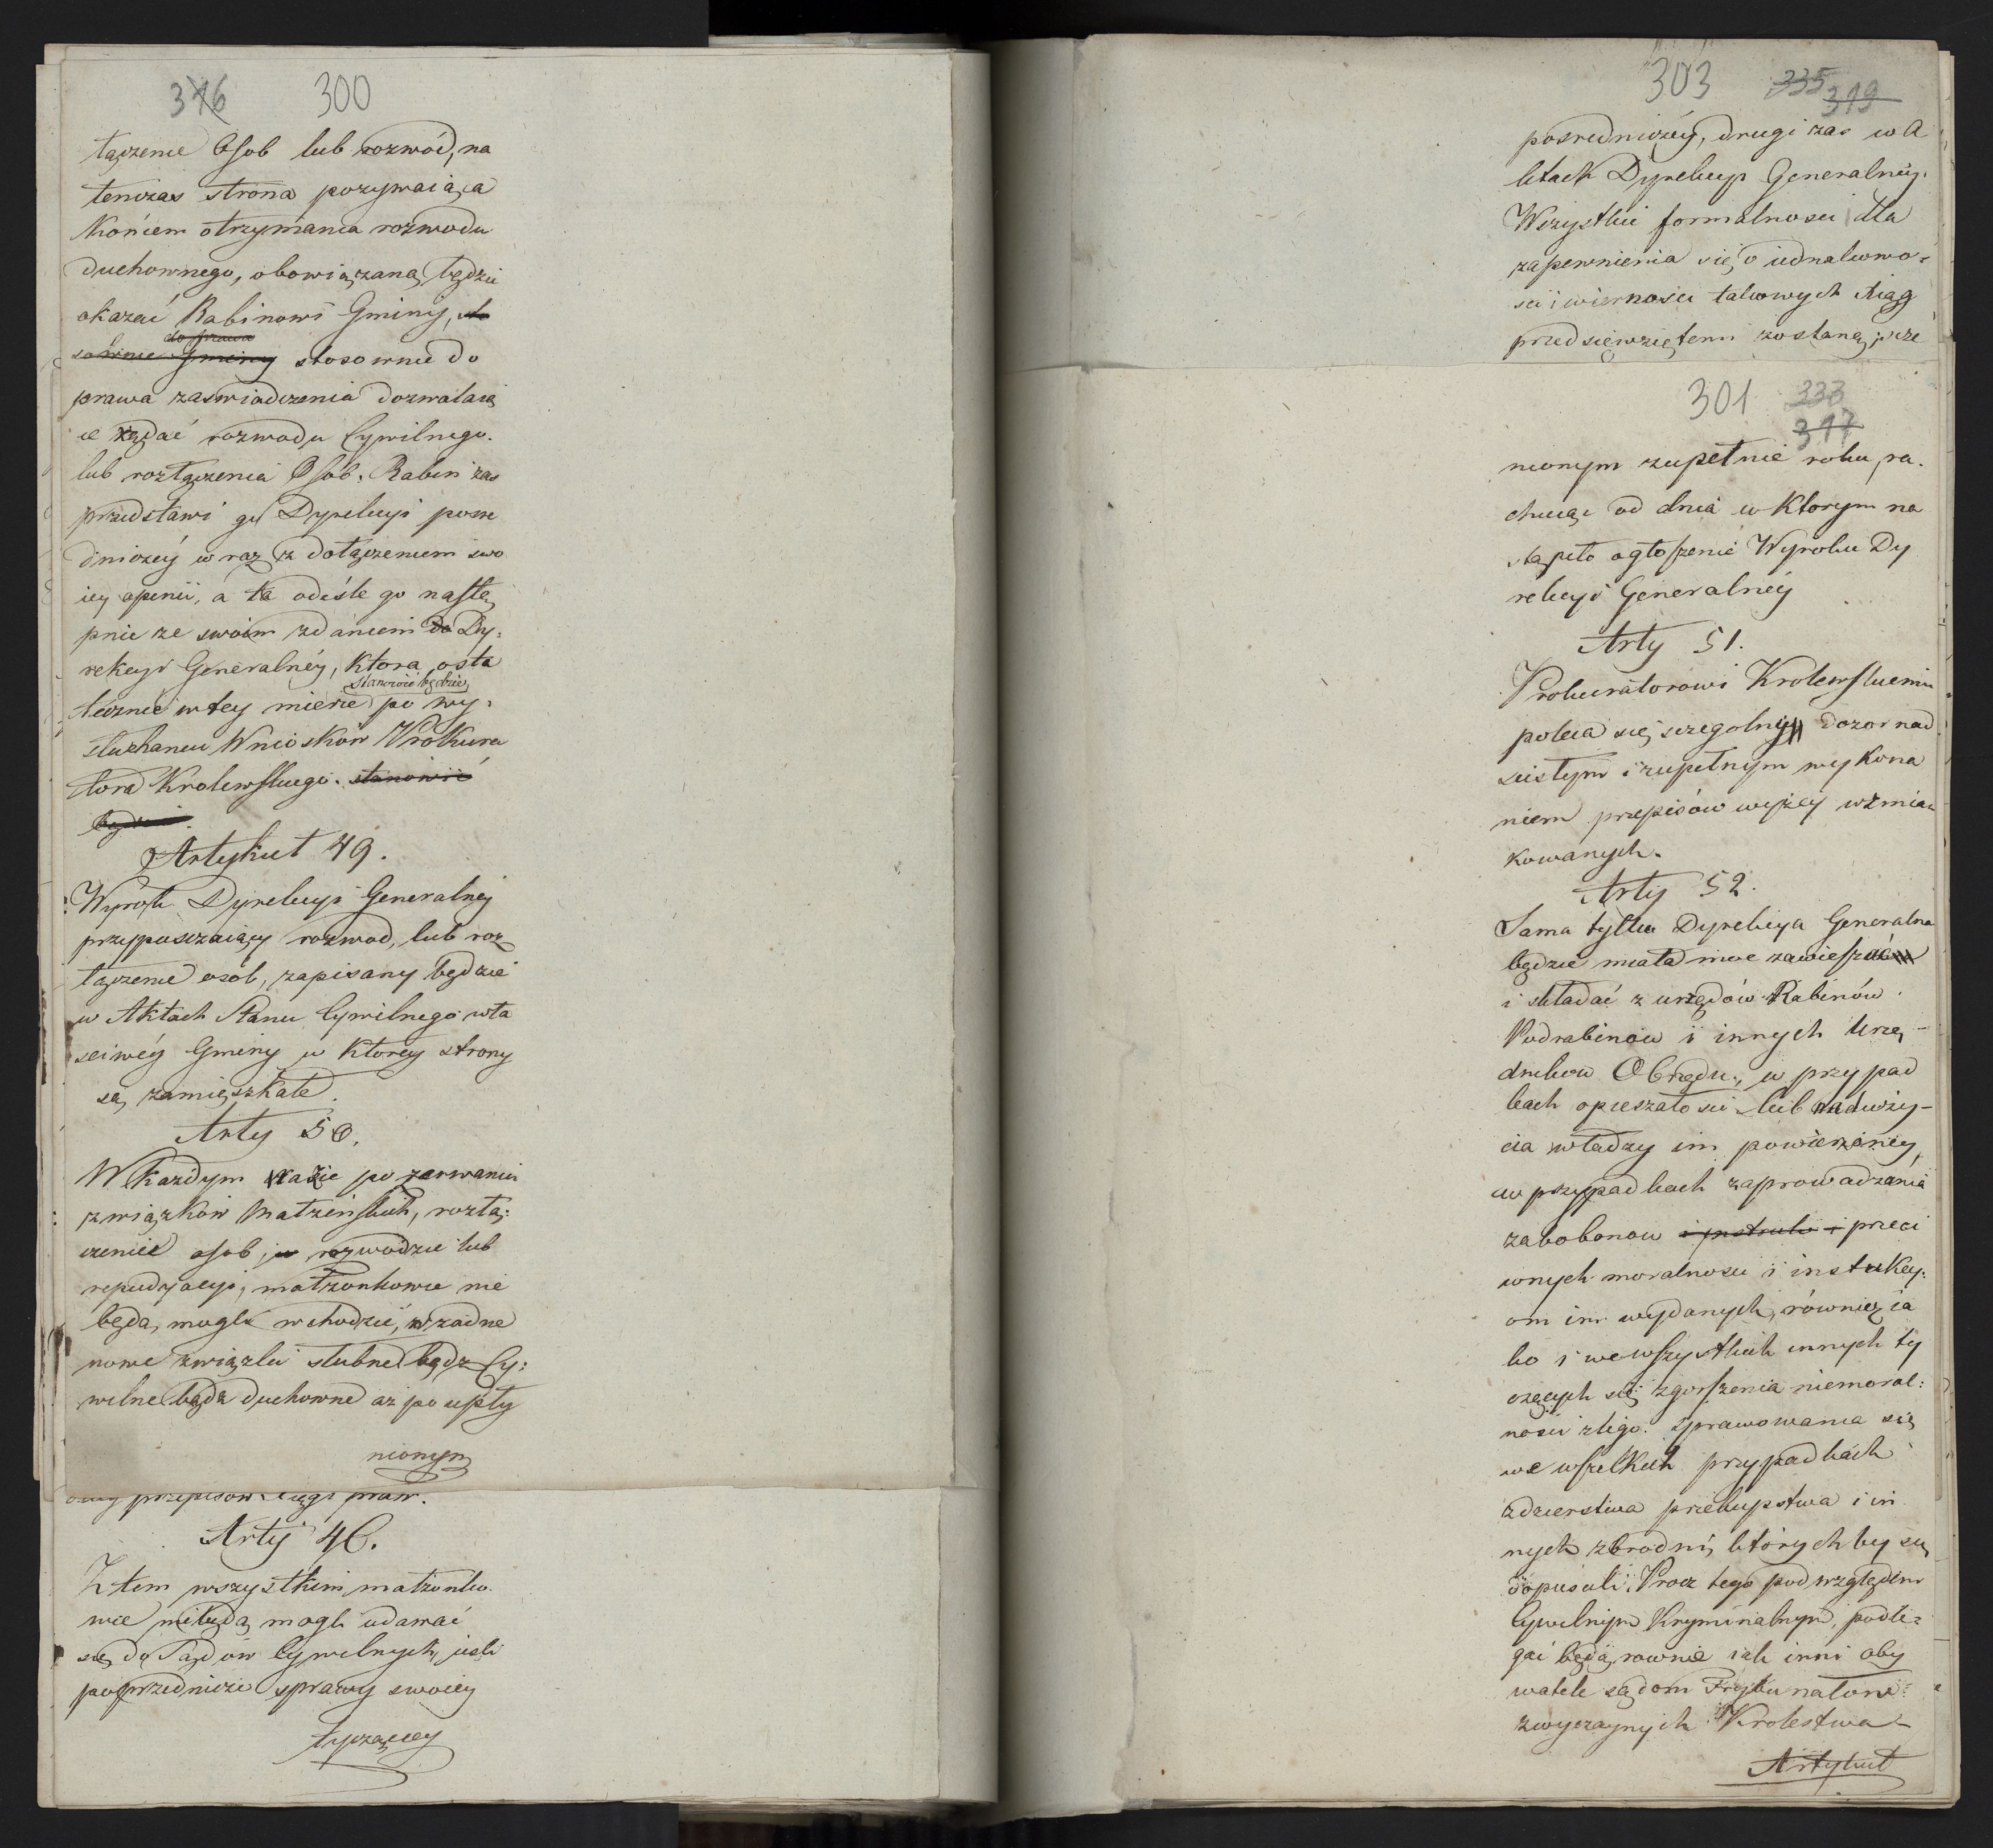 316 300
łączenie Osob lub rozwód, na
tenczas strona pozywaiąca
Końcem otrzymania rozwodu
duchownego, obowiązaną będzie
okazać Rabinowi Gminy, sto
do prawa
sownie Gminy stosownie do
prawa zaswiadczenia dozwalaią
ce żądać rozwodu Cywilnego.
lub rozłączenia Osób. Rabin zas
przedstawi go Dyrekcyi posre
dniczéy wraz z dołączeniem swo
iey opinii, a ta odeśle go nastę
pnie ze swoim zdaniem do Dy:
rekcyi Generalnéy, Ktora osta
stanowić będzie
tecznie w tey mierze po wy:
słuchaniu Wniosków Prokura
tora Krolewskiego. stanowić
będzie.
Artykuł 49.
Wyrok Dyrekcyi Generalnéy
przypuszczaiący rozwod, lub roz
łączenie osób, zapisany będzie
w Aktach Stanu Cywilnego wła
sciwéy Gminy w Ktorey strony
są zamięszkałe.
Arty 50.
W Każdym razie po zerwaniu
związków Małżeńskich, rozłą:
czenie osob, rozwodzie lub
repudyacyi, małżonkowie nie
będą mogli wchodzić, w żadne
nowe związki slubne bądz Cy:
wilne bądz duchowne aż po upły
nionym
przepisow Xięgi praw.
Arty 46.
Z tem wszystkim małżonko
wie niebędą mogli udawać
się do Sądów Cywilnych, iesli
poprzedniczo sprawy swoiéy
tyczącey
303 335 319
posredniczéy, drugi zas w A
ktach Dyrekcyi Generalnéy.
Wszystkie formalnosci dla
zapewnienia się o iednakowo=
sci i wiernosci takowych Xiąg
przedsiewziętemi zostaną; prze
301 333
317
nionym zupełnie roku, ra.
chuiąc od dnia w Ktorym na
stąpiło ogłoszenie Wyroku Dy
rekcyi Generalnéy
Arty 51.
Prokuratorowi Krolewskiemu
poleca się szczegolny dozor nad
scisłym i zupełnym wykona
niem przepisów wyżey wzmian
kowanych.
Arty 52.
Sama tylko Dyrekcya Generalna
będzie miała moc zawieszać
i składać z urzędów Rabinów
Podrabinow i innych Urzę-
dnikow Obrzędu, w przypad
kach opieszałosci lub nadużY-
cia władzy im powierzoney,
w przypadkach zaprowadzania
zabobonow i przeci
wnych moralnosci i instukcy:
om im wydanych, równie ia
ko i we wszystkich innych ty
czących się zgorszenia niemoral:
nosci złego sprawowania się
we wszelkich przypadkach
zdzierstwa przekupstwa i in
nych zbrodni, których by się
dopuscili. Procz tego pod względem
Cywilnym Kryminalnym, podle=
gać będą rownie iak inni oby
watele sądom Trybunałow
zwyczaynych Krolestwa-
Artykuł